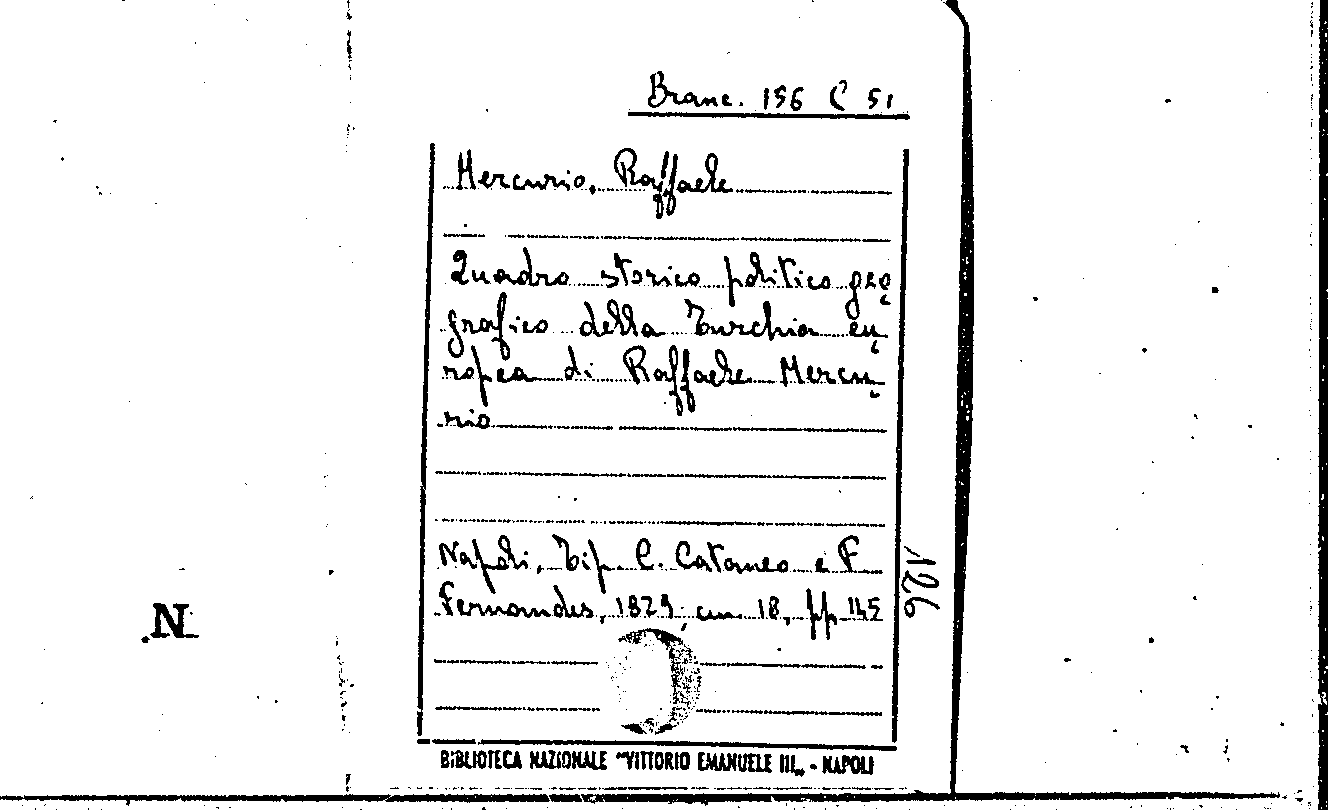 Branc. 156 C 51
Mercurio, Raffaele
Quadro storico politico geo-
grafico della Turchia eu-
ropea di Raffaele Mercu-
rio
Napoli, Tip. C. Cataneo e F.
Fernandes, 1829, cm 18, pp. 145
126
N
BIBLIOTECA NAZIONALE "VITTORIO EMANUELE III„ - NAPOLI